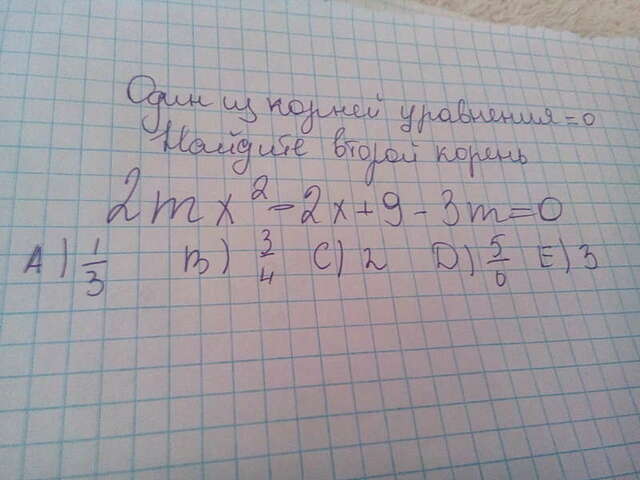 Один из корней уравнения = 0
Найдите второй корень
2mx² - 2x + 9 - 3m = 0
A) 1/3 B) 3/4 C) 2 D) 5/6 E) 3